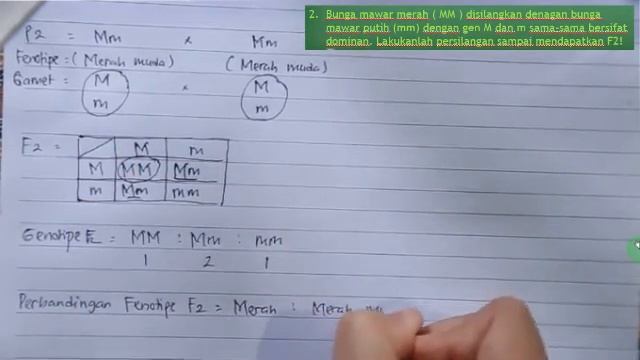 2. Bunga mawar merah ( MM ) disilangkan denagan bunga
mawar putih (mm) dengan gen M dan m sama-sama bersifat
dominan. Lakukanlah persilangan sampai mendapatkan F2!
P2 = Mm x Mm
Fenotipe = ( Merah muda ) ( Merah muda )
Gamet : M x M
m m
F2 =
M m
M MM Mm
m Mm mm
Genotipe F2 = MM : Mm : mm
1 2 1
Perbandingan Fenotipe F2 = Merah : Merah